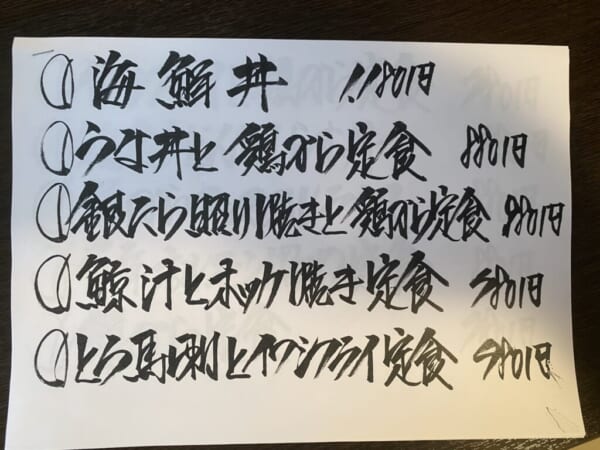 ○海鮮丼 1,180円
○うな丼と鶏から定食 880円
○銀だら照り焼きと鶏から定食 880円
○鯨汁とホッケ焼き定食
○とろ馬刺とイワシフライ定食